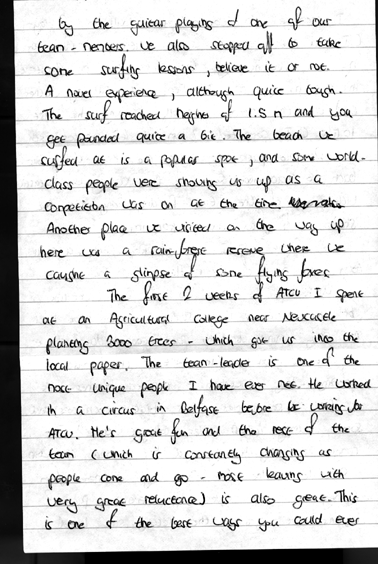 by the guitar playing of one of our
team-members. We also stopped off to take
some surfing lessons, believe it or not.
A novel experience, although quite tough.
The surf reached heights of 1.5m and you
get pounded quite a bit. The beach we
surfed at is a popular spot, and some world-
class people were showing us up as a
competition was on at the time
Another place we visited on the way up
here was a rain-forest reserve where we
caught a glimpse of some flying foxes
The first 2 weeks of ATCV I spent
at an Agricultural College near Newcastle
planting 3000 trees - which got us into the
local paper. The team-leader is one of the
most unique people I have ever met. He worked
in a circus in Belfast before working for
ATCV. He's great fun and the rest of the
team (which is constantly changing as
people come and go - most leaving with
very great reluctance) is also great. This
is one of the best ways you could ever